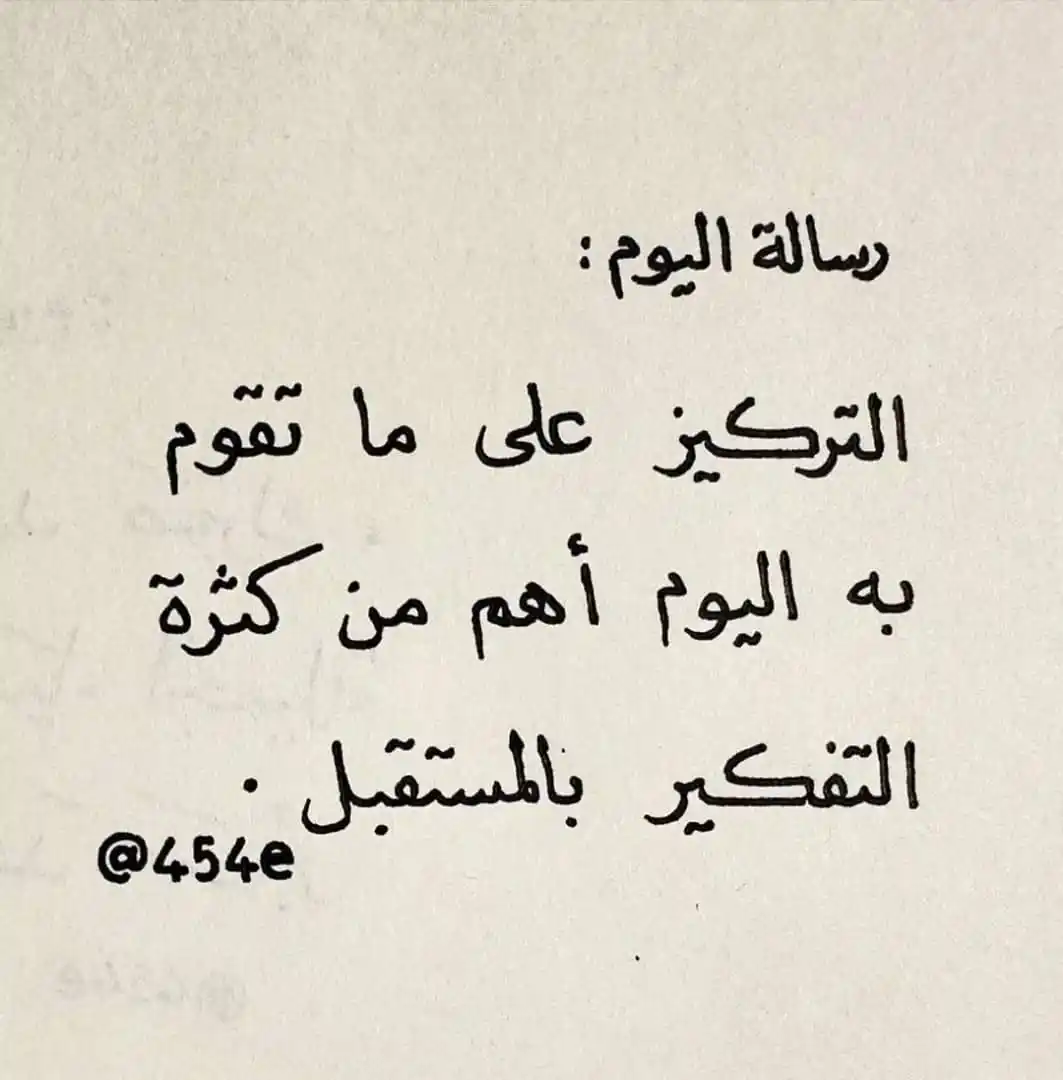 رسالة اليوم :
التركيز على ما تقوم
به اليوم أهم من كثرة
التفكير بالمستقبل .
@454e